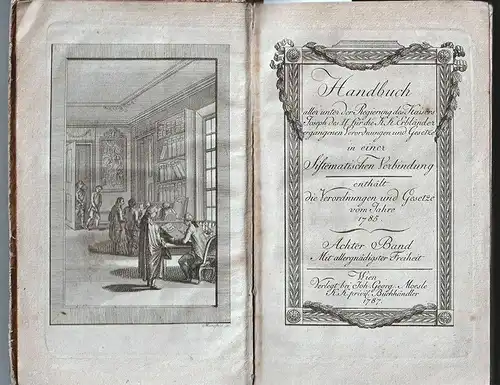 Handbuch
aller unter der Regierung des Kaisers
Joseph des II. für die K.K. Erbländer
ergangenen Verordnungen und Gesetze
in einer
Sistematischen Verbindung
enthält
die Verordnungen und Gesetze
vom Jahre
1785
Achter Band
Mit allergnädigster Freiheit
Wien
Verlegt bei Joh. Georg. Moesle
K.K. privil. Buchhändler
1787.